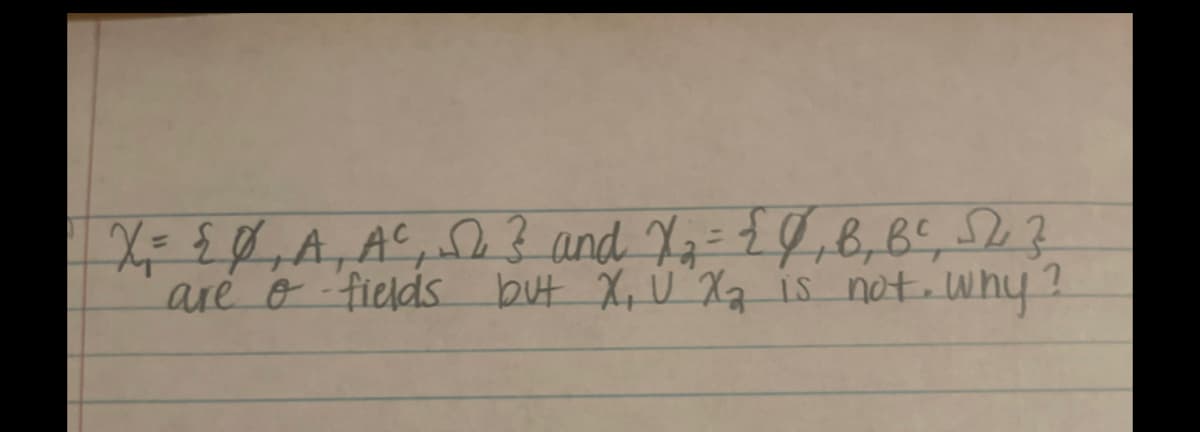 X₁ = {∅, A, Aᶜ, Ω} and X₂ = {∅, B, Bᶜ, Ω}
are σ-fields but X₁ ∪ X₂ is not. why?